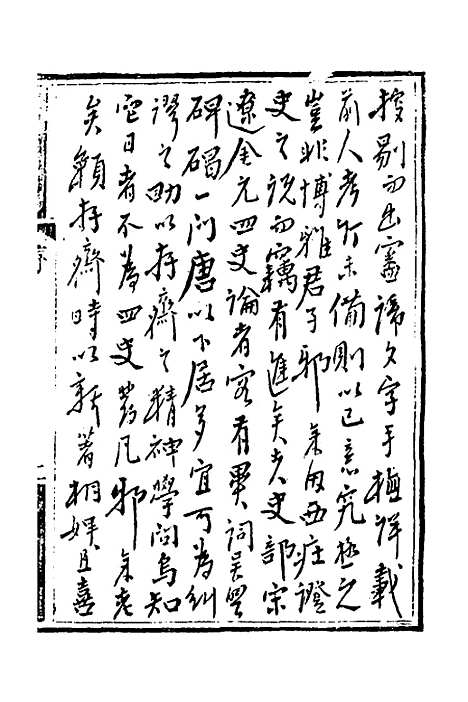 搜剔而出審諦文字手摭詳載
前人考訂未備則以己意究極之
豈非博雅君子邪余因西莊證
史之說而竊有進矣夫史部宋
遼金元四史論者容有異詞
碑碣一门唐以下居多宜可為糾
謬之助以存齋之精神學問烏知
它日者不為四史發凡邪余老
矣顧存齋時以新著相娱且喜
序